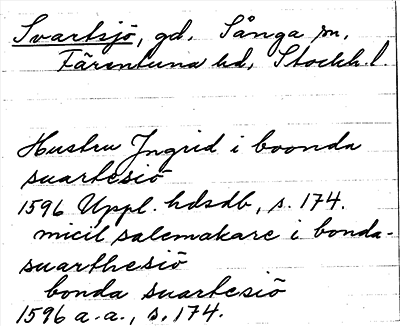 Svartsjö, gd, Sånga sn,
Färentuna hd, Stockh. l.
Hustru Jngrid i boonda
suartesiö
1596 Uppl. hdsdb, s. 174.
micil salemakare i bonda-
suarthesiö
bonda suartesiö
1596 a.a., s. 174.